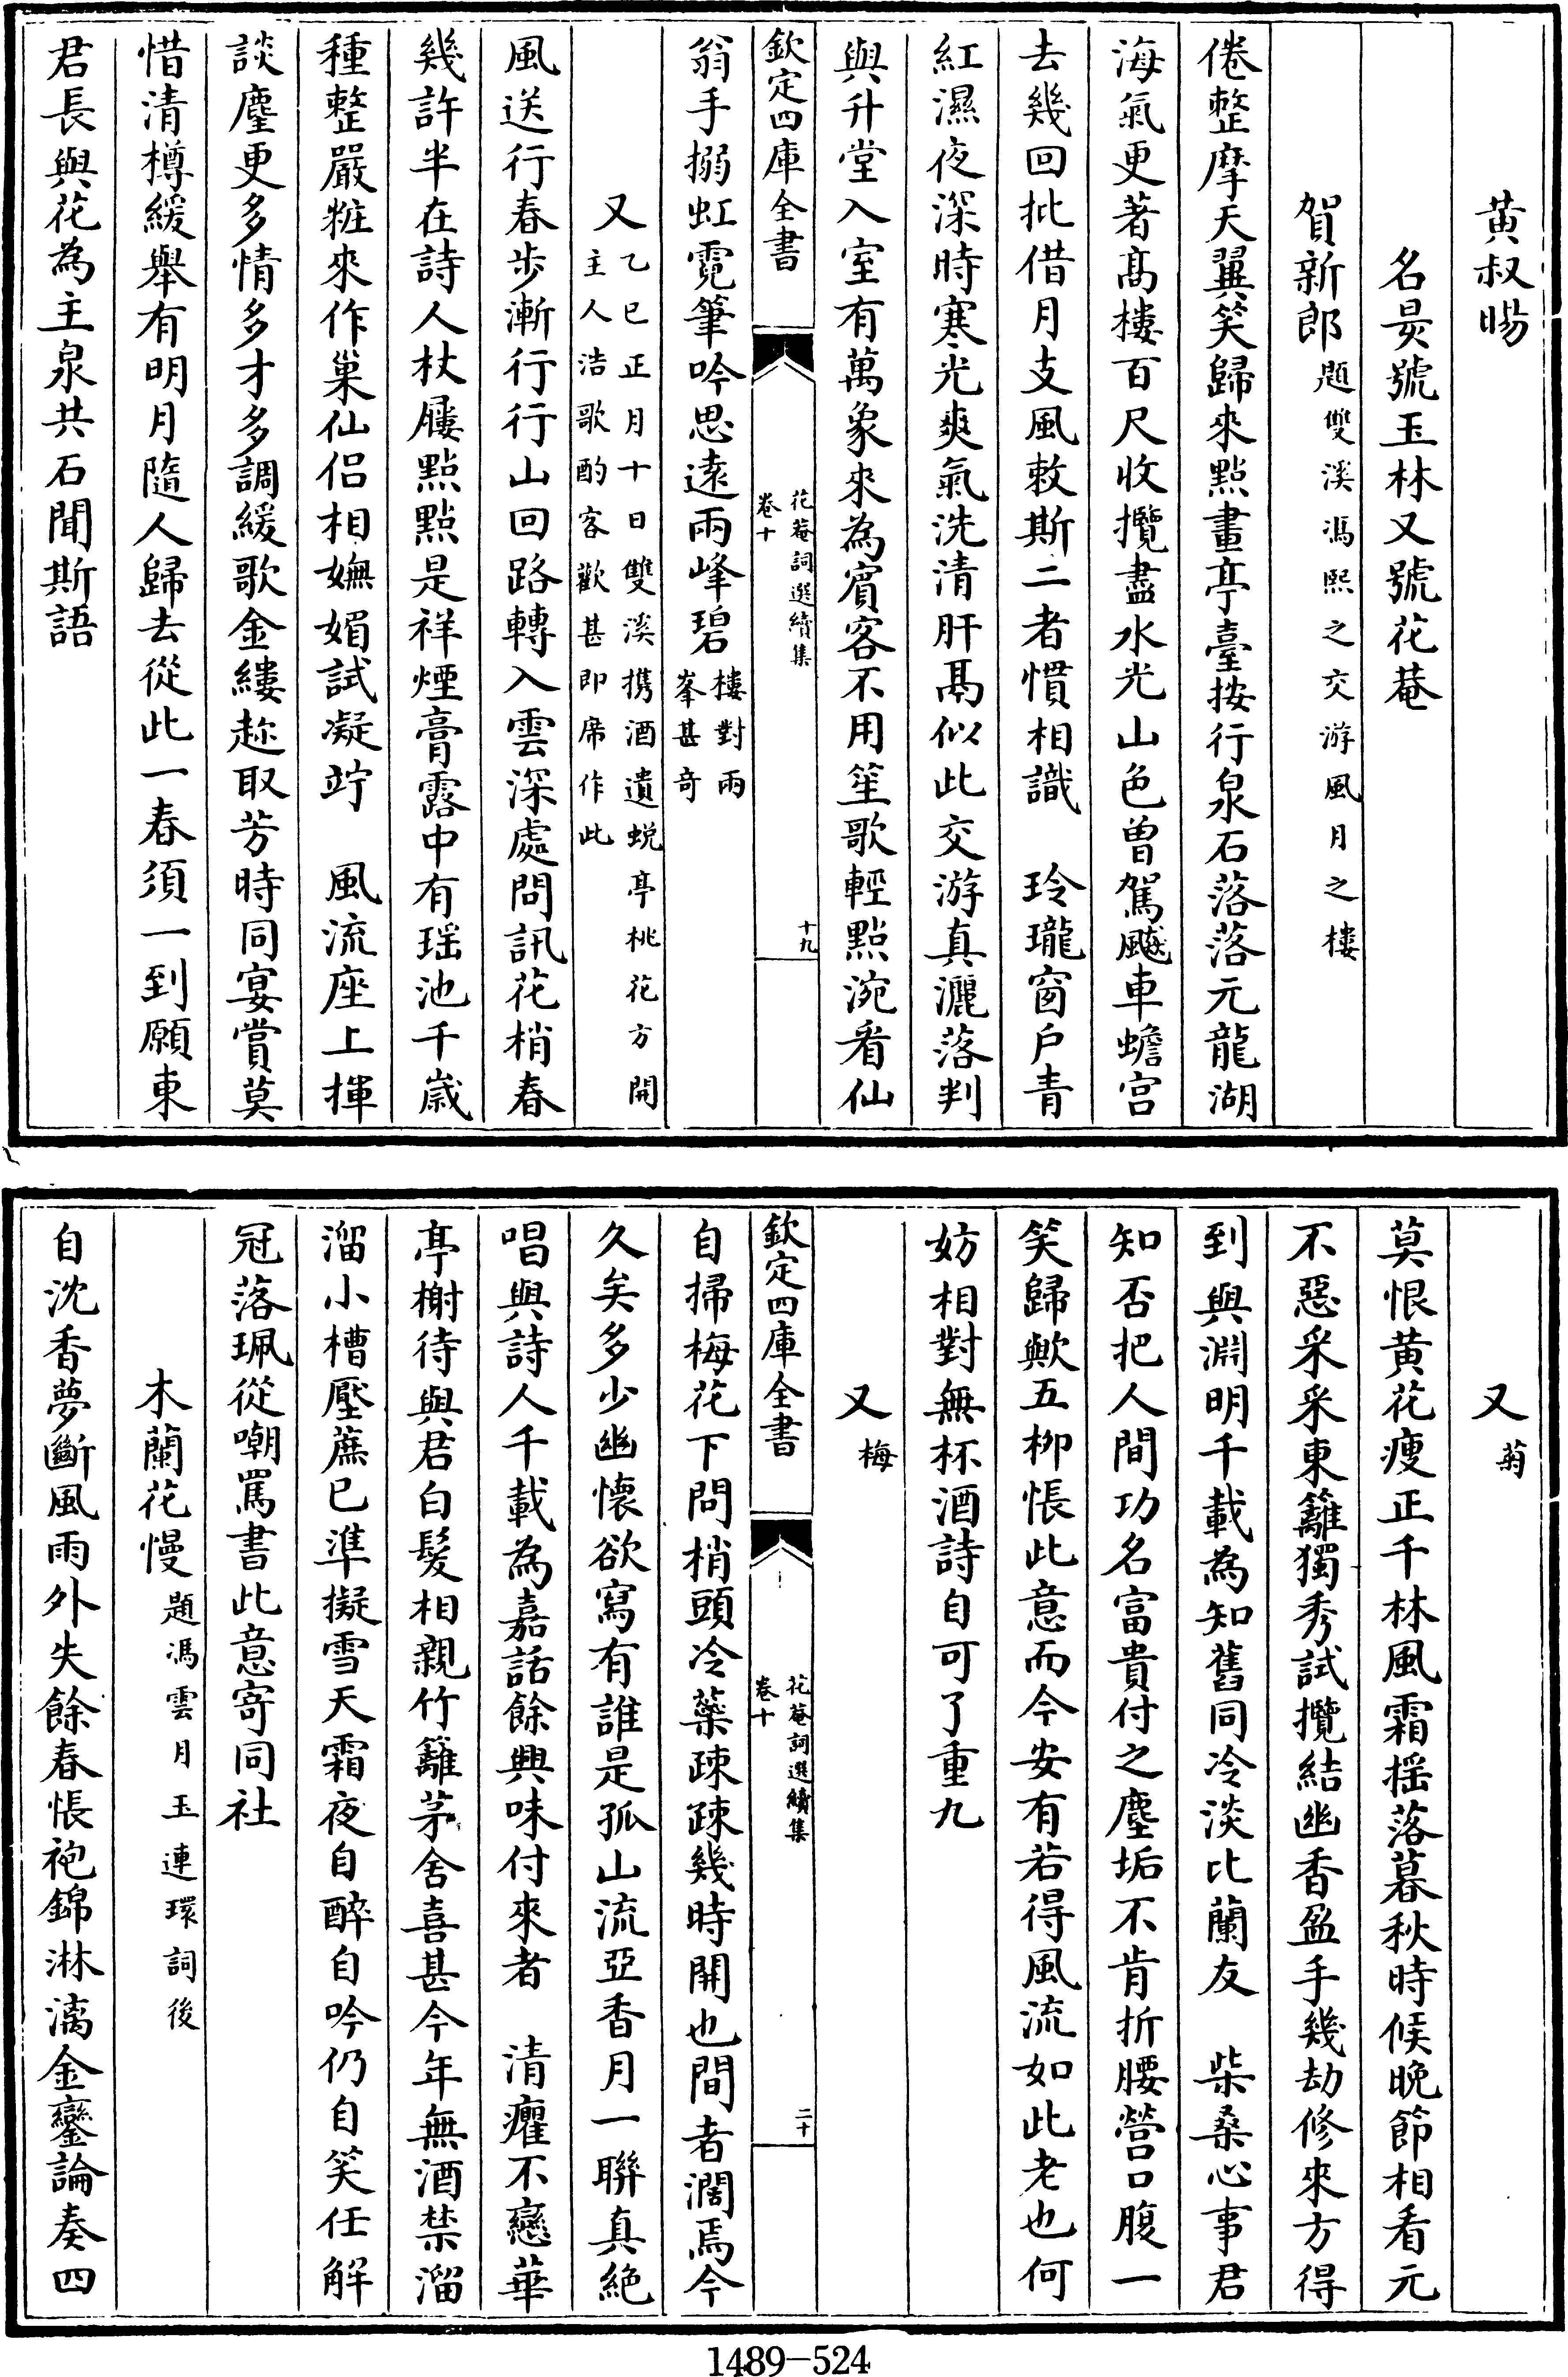 黄叔暘
名昃號玉林又號花菴
賀新郎題雙溪馮熙之交游風月之樓
倦整摩天翼笑歸來點畫亭臺按行泉石落落元龍湖
海氣更著髙樓百尺收攬盡水光山色曾駕飈車蟾宫
去幾回批借月支風敕斯二者慣相識　玲瓏窗戶青
紅濕夜深時寒光爽氣洗清肝鬲似此交游真灑落判
與升堂入室有萬象來為賓客不用笙歌輕點涴看仙
欽定四庫全書
花菴詞選續集
卷十
十九
翁手搦虹霓筆吟思遠兩峰碧樓對兩
峯甚奇
又乙巳正月十日雙溪携酒遺蜕亭桃花方開
主人浩歌酌客歡甚即席作此
風送行春步漸行行山回路轉入雲深處問訊花梢春
幾許半在詩人杖屨點點是祥煙膏露中有瑶池千嵗
種整嚴粧來作巢仙侣相嫵媚試凝竚　風流座上揮
談麈更多情多才多調緩歌金縷趂取芳時同宴賞莫
惜清樽緩舉有明月隨人歸去從此一春須一到願東
君長與花為主泉共石聞斯語
又菊
莫恨黄花瘦正千林風霜揺落暮秋時候晚節相看元
不惡采采東籬獨秀試攬結幽香盈手幾劫修來方得
到與淵明千載為知舊同冷淡比蘭友　柴桑心事君
知否把人間功名富貴付之塵垢不肯折腰營口腹一
笑歸歟五柳悵此意而今安有若得風流如此老也何
妨相對無杯酒詩自可了重九
又梅
欽定四庫全書
花菴詞選續集
卷十
二十
自掃梅花下問梢頭冷蘂疎疎幾時開也間者濶焉今
久矣多少幽懷欲寫有誰是孤山流亞香月一聯真絶
唱與詩人千載為嘉話餘興味付來者　清癯不戀華
亭榭待與君白髪相親竹籬茅舍喜甚今年無酒禁溜
溜小槽壓蔗已準擬雪天霜夜自醉自吟仍自笑任解
冠落珮從嘲罵書此意寄同社
木蘭花慢題馮雲月玉連環詞後
自沈香夢斷風雨外失餘春悵袍錦淋漓金鑾論奏四
1489-524